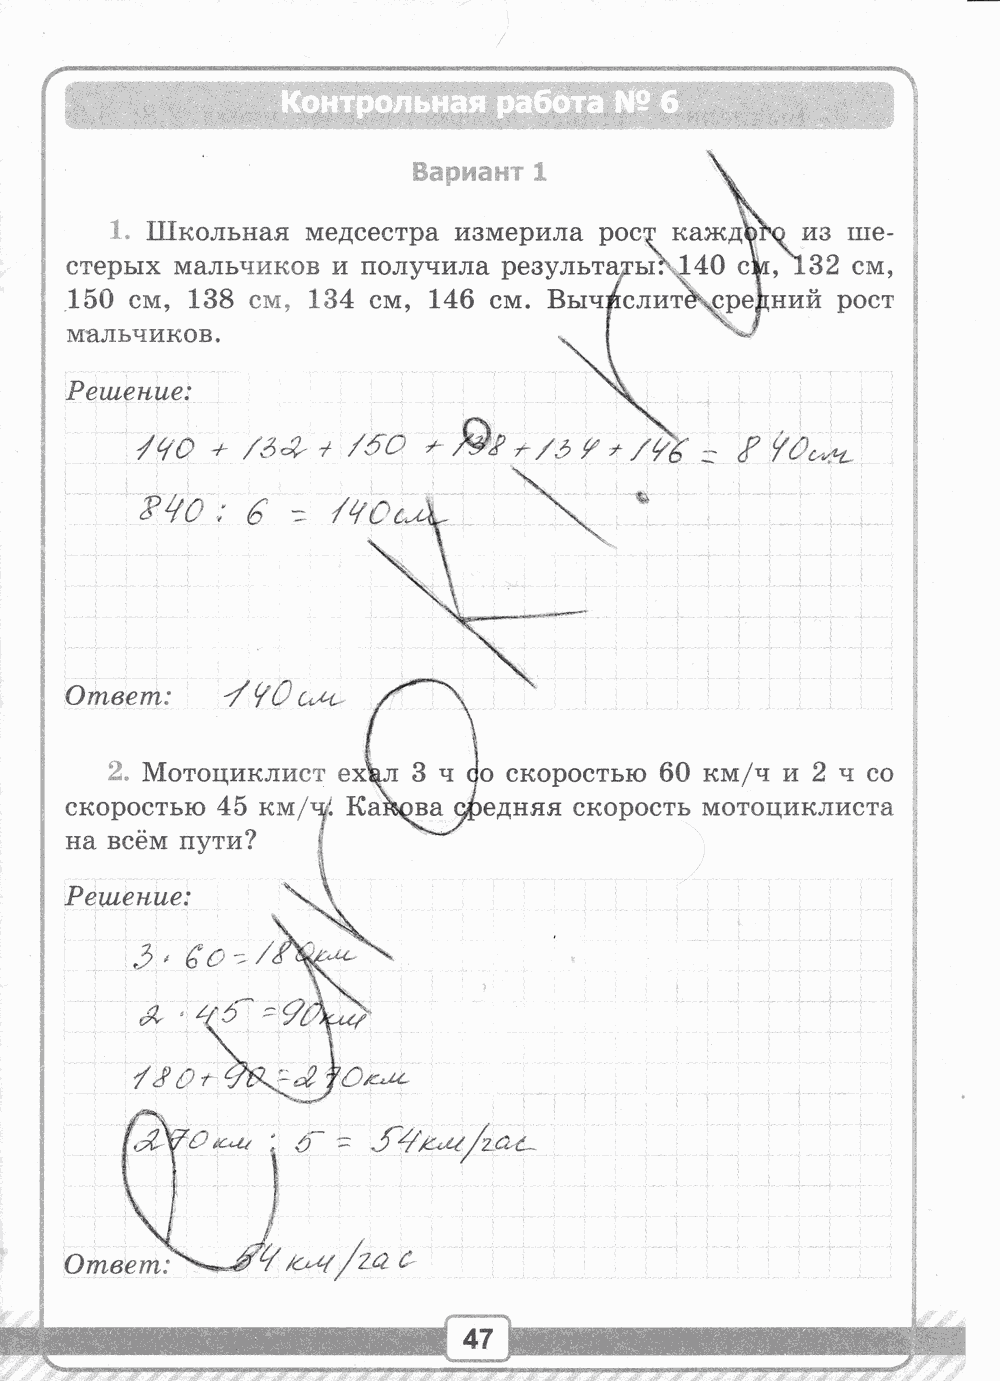 Контрольная работа № 6
Вариант 1
1. Школьная медсестра измерила рост каждого из ше-
стерых мальчиков и получила результаты: 140 см, 132 см,
150 см, 138 см, 134 см, 146 см. Вычислите средний рост
мальчиков.
Решение:
140 + 132 + 150 + 138 + 134 + 146 = 840 см
840 : 6 = 140 см
Ответ: 140 см
2. Мотоциклист ехал 3 ч со скоростью 60 км/ч и 2 ч со
скоростью 45 км/ч. Какова средняя скорость мотоциклиста
на всём пути?
Решение:
3 · 60 = 180 км
2 · 45 = 90 км
180 + 90 = 270 км
270 км : 5 = 54 км/час
Ответ: 54 км/час
47